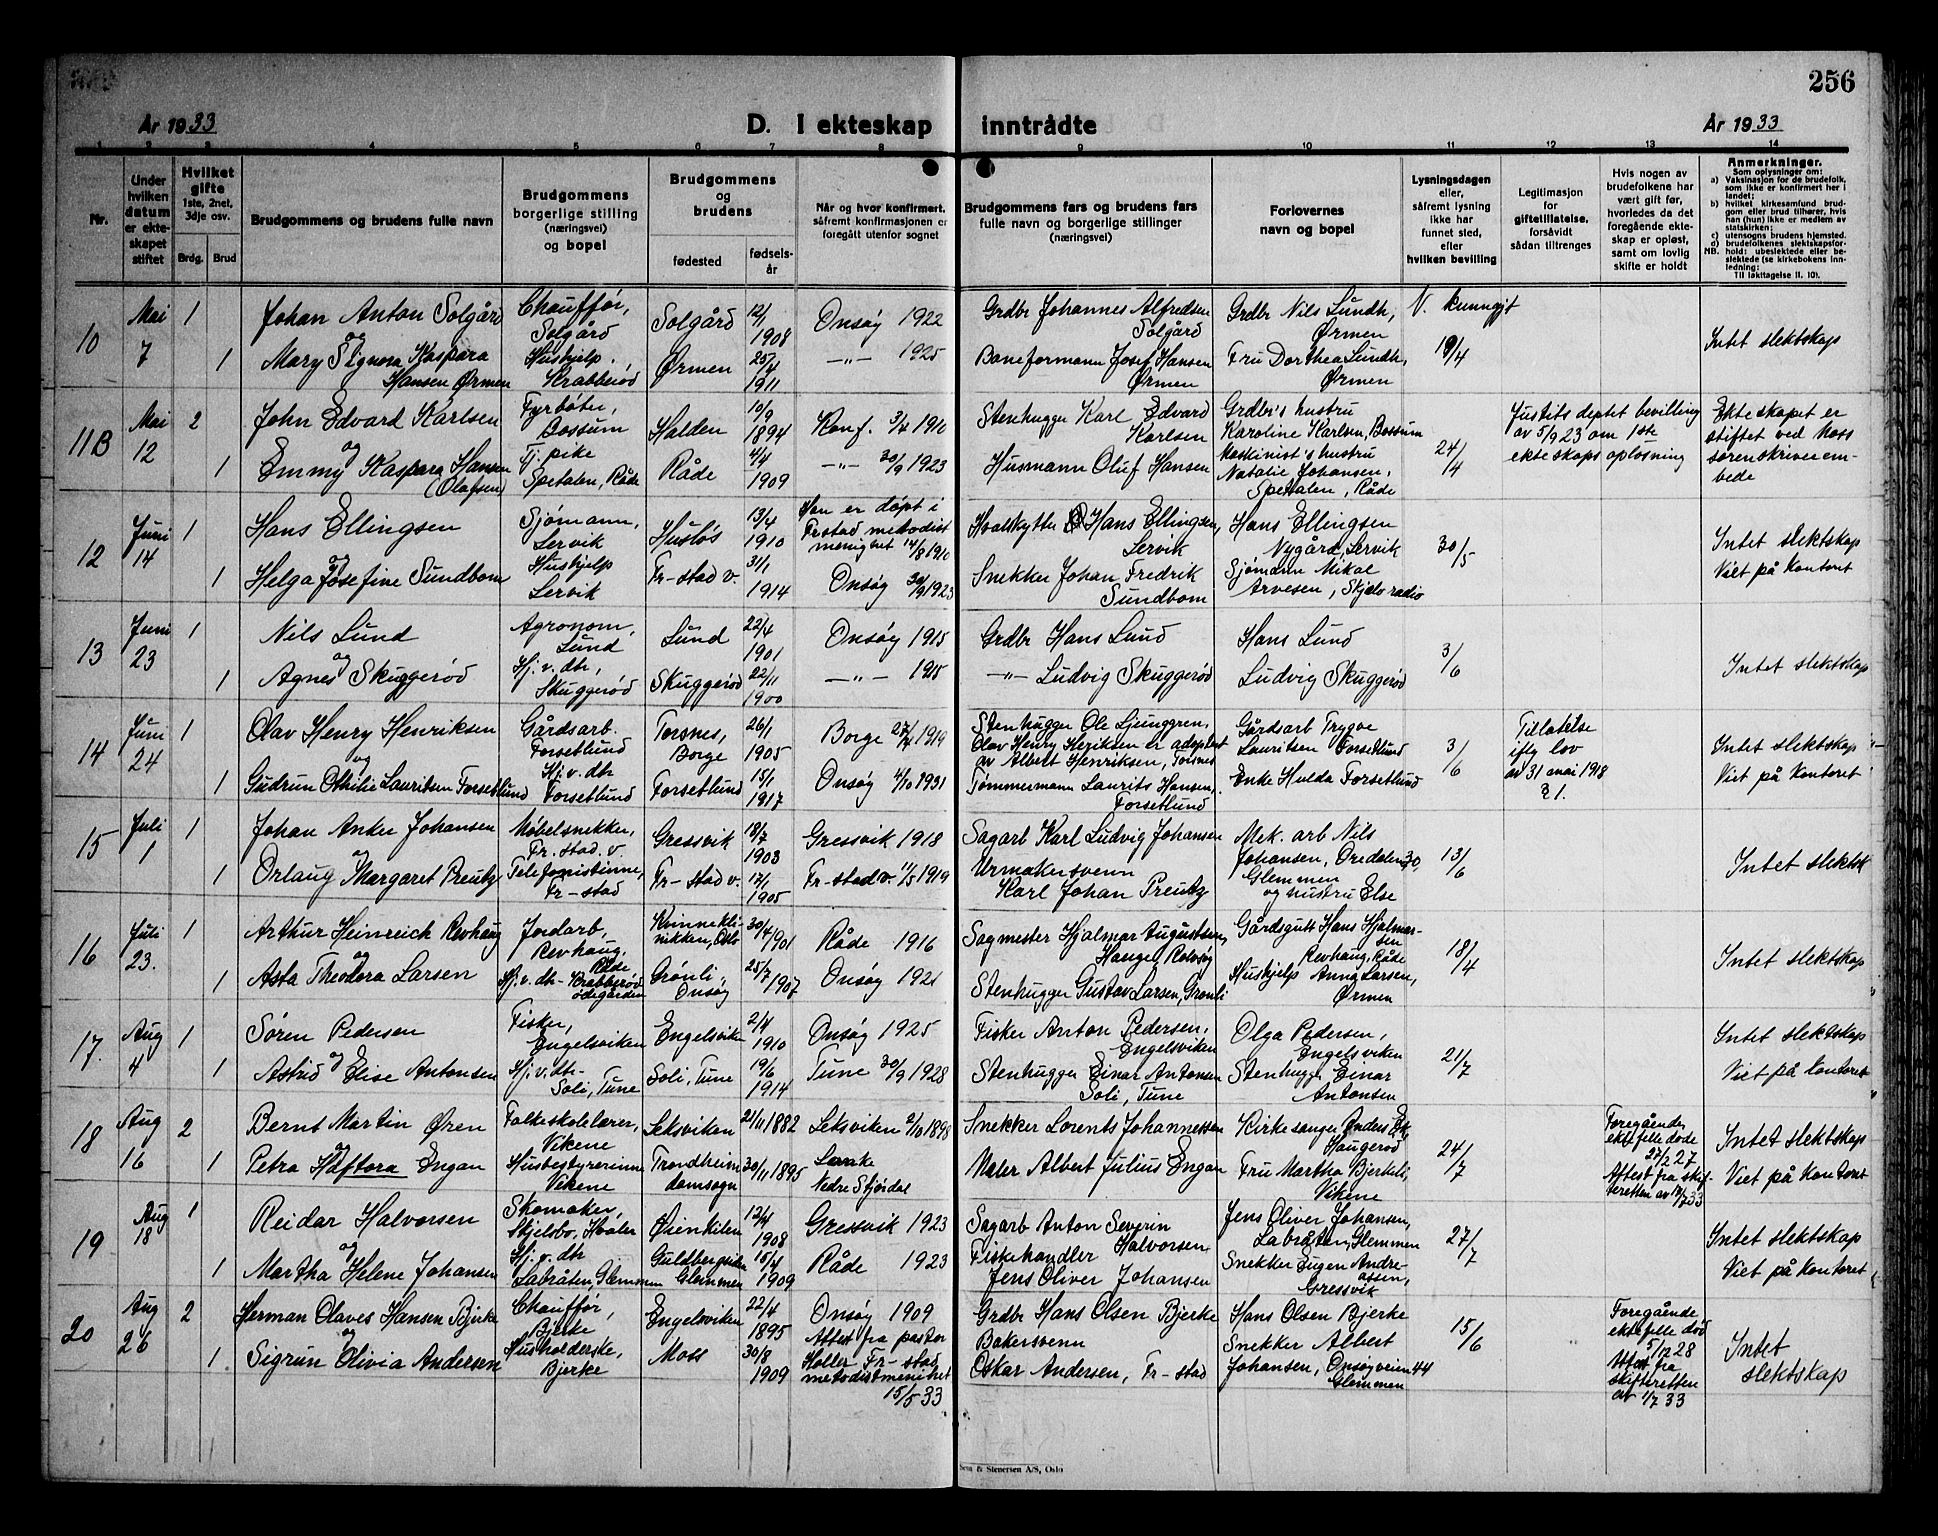 256
År 1933
D. I ekteskap inntrådte
År 1933
1 2 3 4 5 6 7 8 9 10 11 12 13 14
Nr.
Under hvilken datum er ekteskapet stiftet
Hvilket gifte 1ste, 2net, 3dje osv.
Brdg. Brud
Brudgommens og brudens fulle navn
Brudgommens borgerlige stilling (næringsvei) og bopel
Brudgommens og brudens
fødested
fødselsår
Når og hvor konfirmert, såfremt konfirmasjonen er foregått utenfor sognet
Brudgommens fars og brudens fars fulle navn og borgerlige stillinger (næringsvei)
Forlovernes navn og bopel
Lysningsdagen eller, såfremt lysning ikke har funnet sted, efter hvilken bevilling
Legitimasjon for giftetillatelse, forsåvidt sådan tiltrenges
Hvis nogen av brudefolkene har vært gift før, hvorledes da det foregående ekteskap er opløst, samt om lovlig skifte er holdt
Anmerkninger.
Som oplysning om:
a) Vaksinasjon for de brudefolk, som ikke er konfirmert her i landet;
b) hvilket kirkesamfund brudgom eller brud tilhører, hvis han (hun) ikke er medlem av statskirken;
c) utensogns brudens hjemsted.
d) brudefolkenes slektskapsforhold: ubeslektede eller beslektede (se kirkebokens innledning:
NB.
Til iakttagelse II. 10).
10 Mai 7 1 Johan Anton Solgård Chauffør, Solgård Solgård 12/1 1908 Onsøy 1922 Grdbr Johannes Alfredsen Solgård Grdbr Nils Lundh, Ørmen V. kunngjt 19/4 Intet slektskap
og
1 Mary Signora Kaspera Hansen Ørmen Hushjelp. Krabberød Ørmen 25/4 1911 -"- 1925 Baneformann Josef Hansen Ørmen Fru Dorthea Lundh, Ørmen
11B Mai 12 2 John Edvard Karlsen Fyrbøter, Bossum Halden 10/9 1894 Konf. 3/4 1910 Stenhugger Karl Edvard Karlsen Grdbr's hustru Karoline Karlsen, Bossum 24/4 Justits deptet bevilling av 5/9 23 om 1ste ekteskaps opløsning Ekteskapet er stiftet ved Moss sorenskriverembede
og
1 Emmy Kaspara Hansen (Olafsen) Tj. pike Spetalen, Råde Råde 4/4 1909 -"- 30/9 1923 Husmann Oluf Hansen Maskinist's hustru Natalie Johansen, Spetalen, Råde
12 Juni 14 1 Hans Ellingsen Sjømann, Lervik Husløs 13/4 1910 Han er døpt i Frstad metodist menighet 14/8 1910 Hvalskytter Hans Ellingsen, Lervik Hans Ellingsen Nygård, Lervik 30/5 Intet slektskap Viet på kontoret
og
1 Helga Josefine Sundbom Hushjelp Lervik Fr-stad v. 31/1 1914 Onsøy 30/9 1923 Snekker Johan Fredrik Sundbom Sjømann Mikal Arvesen, Skjelv radio
13 Juni 23 1 Nils Lund Agronom, Lund Lund 22/4 1901 Onsøy 1915 Grdbr Hans Lund Hans Lund 3/6 Intet slektskap
og
1 Agnes Skuggerød Hj. v. dtr, Skuggerød Skuggerød 22/11 1900 -"- 1915 -"- Ludvig Skuggerød Ludvig Skuggerød
14 Juni 24 1 Olav Henry Henriksen Gårdsarb. Forsetlund Torsnes, Borge 26/1 1905 Borge 27/4 1919 Stenhugger Ole Ljunggren. Olav Henry Heriksen er adoptert av Albert Henriksen, Torsnes Gårdsarb Trygve Lauritsen Forsetlund 3/6 Tillatelse iflg lov av 31 mai 1918 § 1. Intet slektskap Viet på kontoret
og
1 Gudrun Othilie Lauritsen Forsetlund Hj. v. dtr Forsetlund Forsetlund 15/1 1917 Onsøy 4/10 1931 Tømmermann Laurits Hansen, Forsetlund Enke Hulda Forsetlund
15 Juli 1 1 Johan Anker Johansen Møbelsnekker, Fr. stad. v. Gressvik 18/7 1903 Gressvik 1918 Sagarb Karl Ludvig Johansen Mek. arb Nils Johansen, Oredalen 30, Glemmen og hustru Else 13/6 Intet slektsk
og
1 Orlaug Margaret Preutz Telefonistinne, Fr-stad Fr-stad v. 12/1 1905 Fr-stad v. 11/5 1919 Urmakersvenn Karl Johan Preutz
16 Juli 23. 1 Arthur Heinreich Revhaug Jordarb, Revhaug, Råde Kvinneklinikken, Oslo 30/4 1901 Råde 1916 Sagmester Hjalmar Augustsen, Haugen Rolvsøy Gårdsgutt Hans Hjalmarsen Revhaug, Råde 18/4 Intet slektskap
og
1 Asta Theodora Larsen Hj. v. dtr- Krabberød ødegården Grønli Onsøy 25/7 1907 Onsøy 1921 Stenhugger Gustav Larsen, Grønli Hushjelp Anna Larsen, Ørmen
17. Aug 4 1 Søren Pedersen Fisker, Engelsviken Engelsviken 2/4 1910 Onsøy 1925 Fisker Anton Pedersen, Engelsviken Olga Pedersen, Engelsviken 21/7 Intet slektskap Viet på kontoret
og
1 Astrid Elise Antonsen Hj. v. dtr- Soli, Tune Soli, Tune 19/6 1914 Tune 30/9 1928 Stenhugger Einar Antonsen Soli, Tune Stenhugger Einar Antonsen
18 Aug 16 2 Bernt Martin Øren Folkeskolelærer, Vikene Leksviken 21/11 1882 Leksviken 2/10 1898 Snekker Lorents Johannessen Kirkesanger Anders Haugerød 24/7 Foregående ektefelle døde 27/2 27 Attest fra skifteretten av 17/7 33 Intet slektskap Viet på kontoret
og
1 Petra Haftora Engan Husbestyrerinne Vikene Trondheim domsogn 30/11 1895 Laanke Nedre Stjørdal Maler Albert Julius Engan Fru Martha Bjerkeli, Vikene
19 Aug 18 1 Reidar Halvorsen Skomaker, Skjelsbo, Hvaler Øienkilen 12/4 1908 Gressvik 1923 Sagarb Anton Severin Halvorsen Jens Oliver Johansen, Labråten, Glemmen 27/7 Intet slektskap Viet på kontoret
og
1 Martha Helene Johansen Hj. v. dtr Labråten Glemmen Guldbergsiden Glemmen 15/4 1909 Råde 1923 Fiskehandler Jens Oliver Johansen Snekker Eugen Andreassen, Gressvik
20 Aug 26 2 Herman Olaves Hansen Bjerke Chauffør, Bjerke Engelsviken 22/4 1895 Onsøy 1909 Grdbr Hans Olsen Bjerke Hans Olsen Bjerke 15/6 Foregående ektefelle død 5/12 28 Attest fra skifteretten av 1/7 33 Intet slektskap
og
1 Sigrun Olivia Andersen Husholderske, Bjerke Moss 30/8 1909 Attest fra pastor Holler Fr-stad metodistmenihet 15/5 33 Bakersvenn Oskar Andersen, Fr-stad Snekker Albert Johansen, Onsøyveien 44 Glemmen
& Stenersen A/S, Oslo